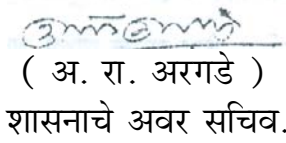 ( अ. रा. अरगडे )
शासनाचे अवर सचिव.